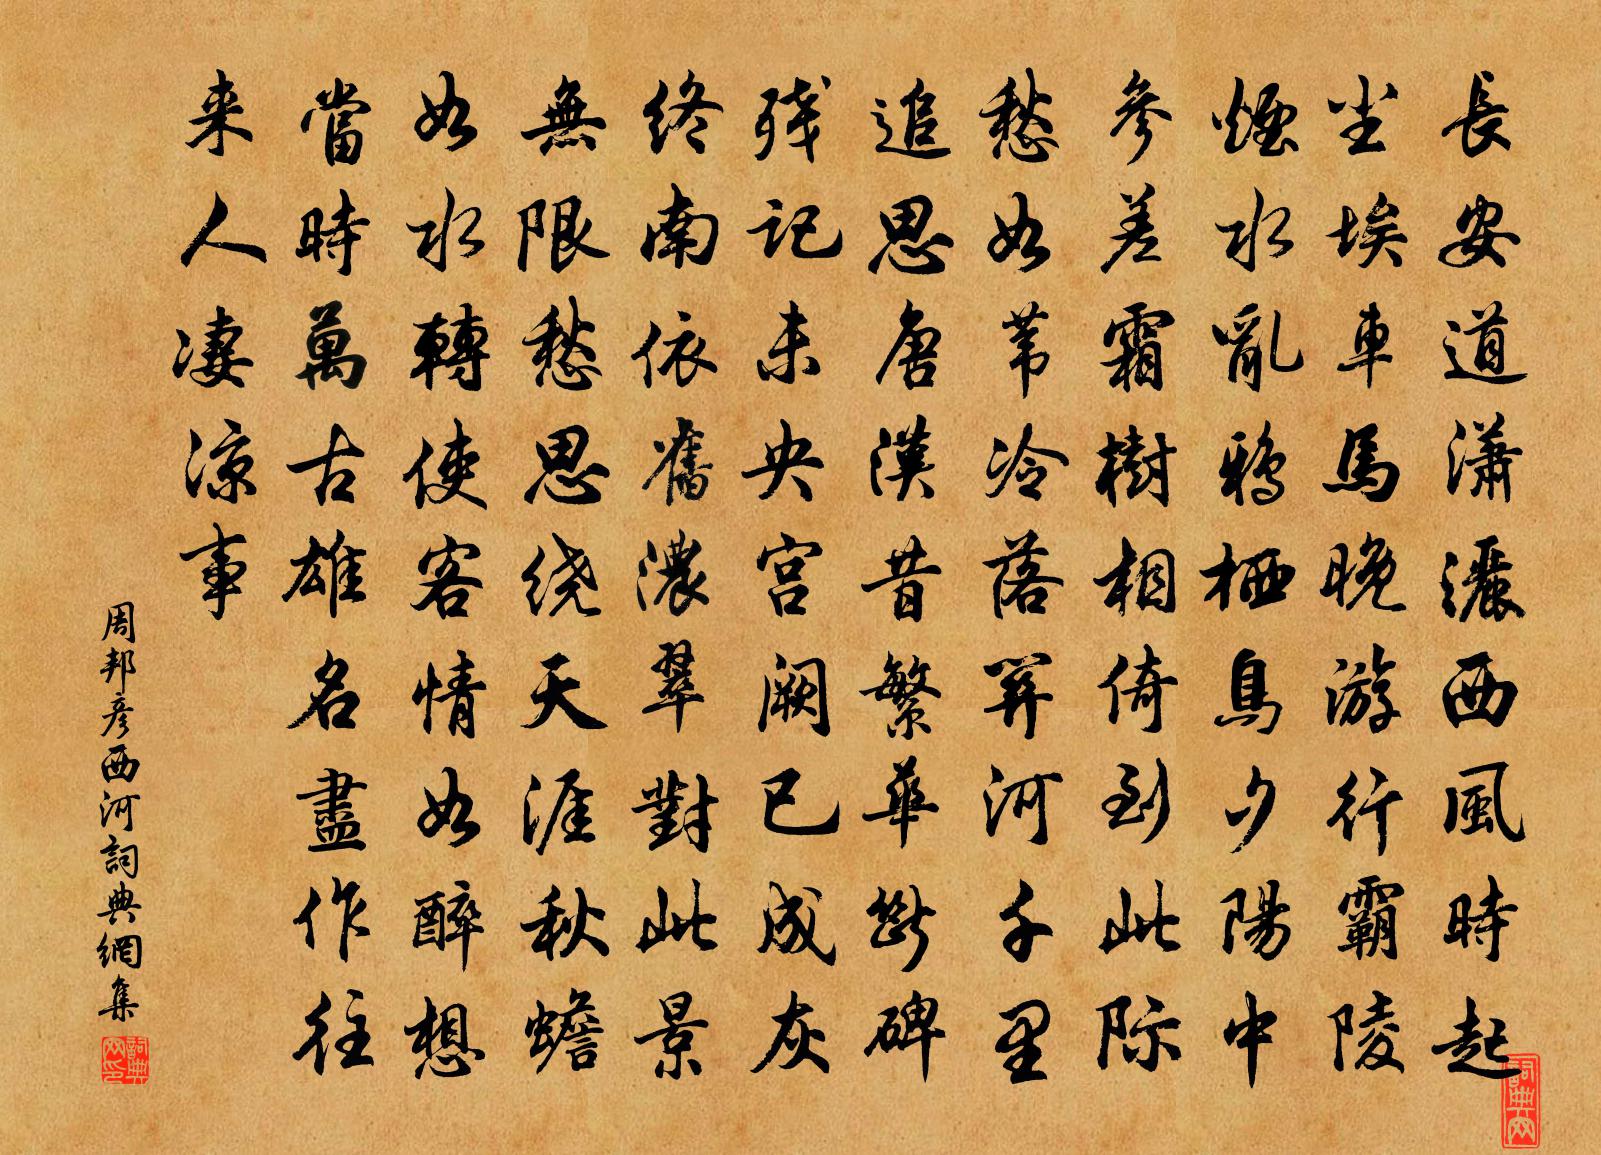 長安道瀟灑西風時起
尘埃車馬晚游行霸陵
煙水亂鴉栖鳥夕陽中
參差霜樹相倚到此际
愁如苇冷落關河千里
追思唐漢昔繁華断碑
残記未央宫阙已成灰
终南依舊濃翠對此景
無限愁思绕天涯秋蟾
如水轉使客情如醉想
當時萬古雄名盡作往
来人凄凉事
周邦彦西河詞典網集
詞典网印
詞典网